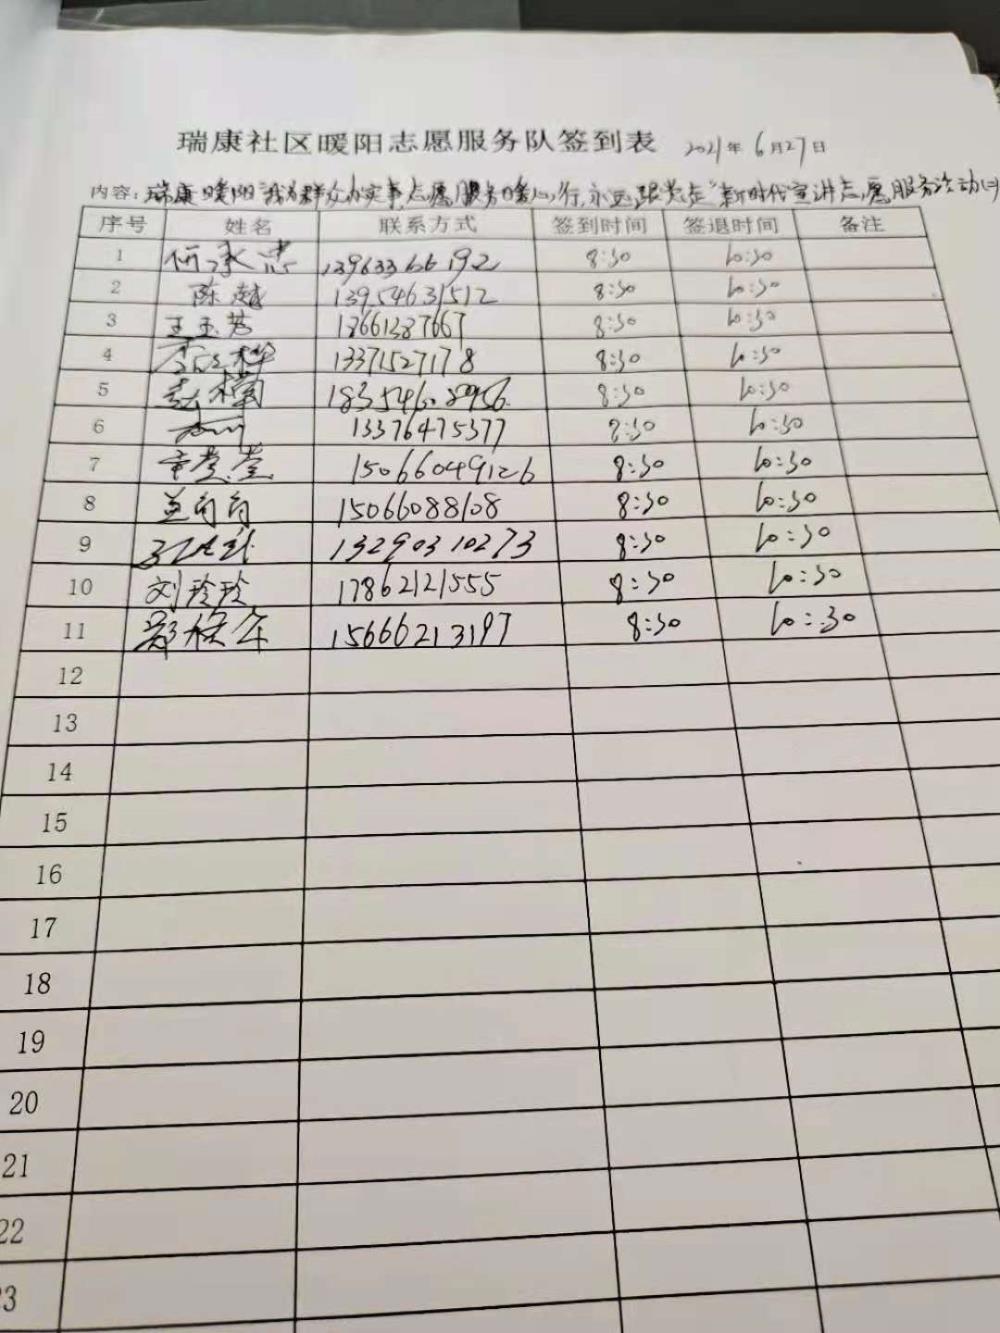 瑞康社区暖阳志愿服务队签到表 2021年6月27日
内容:瑞康暖阳"我为群众办实事志愿服务暖心行,永远跟党走"新时代宣讲志愿服务活动(二)
序号 姓名 联系方式 签到时间 签退时间 备注
1 13963366192 8:30 10:30
2 陈越 13954631512 8:30 10:30
3 王玉芳 13661387667 8:30 10:30
4 13371527178 8:30 10:30
5 18354608956 8:30 10:30
6 13376475377 8:30 10:30
7 15066049126 8:30 10:30
8 15066088108 8:30 10:30
9 13290310273 8:30 10:30
10 刘玲玲 17862121555 8:30 10:30
11 15666213197 8:30 10:30
12
13
14
15
16
17
18
19
20
21
22
23